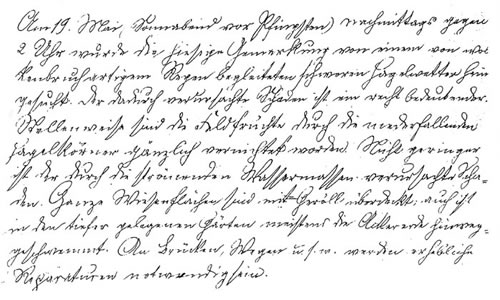 Am 19. Mai, Sonnabend vor Pfingsten) nachmittags gegen
2 Uhr wurde die hiesige Gemerkung von einem von wol
kenbruchartigem Regen begleiteten schweren Hagelwetter heim
gesucht. Der dadurch verursachte Schaden ist ein recht bedeutender.
Stellenweise sind die Feldfrüchte durch die niederfallenden
Hagelkörner gänzlich vernichtet worden. Nicht geringer
ist der durch die strömenden Wassermassen verursachte Scha-
den. Ganze Wiesenflächen sind mit Geröll überdeckt; auch ist
in den tiefer gelegenen Gärten meistens die Ackererde hinweg-
geschwemmt. An Brücken, Wegen u. s. w. werden erhebliche
Reparaturen notwendig sein.